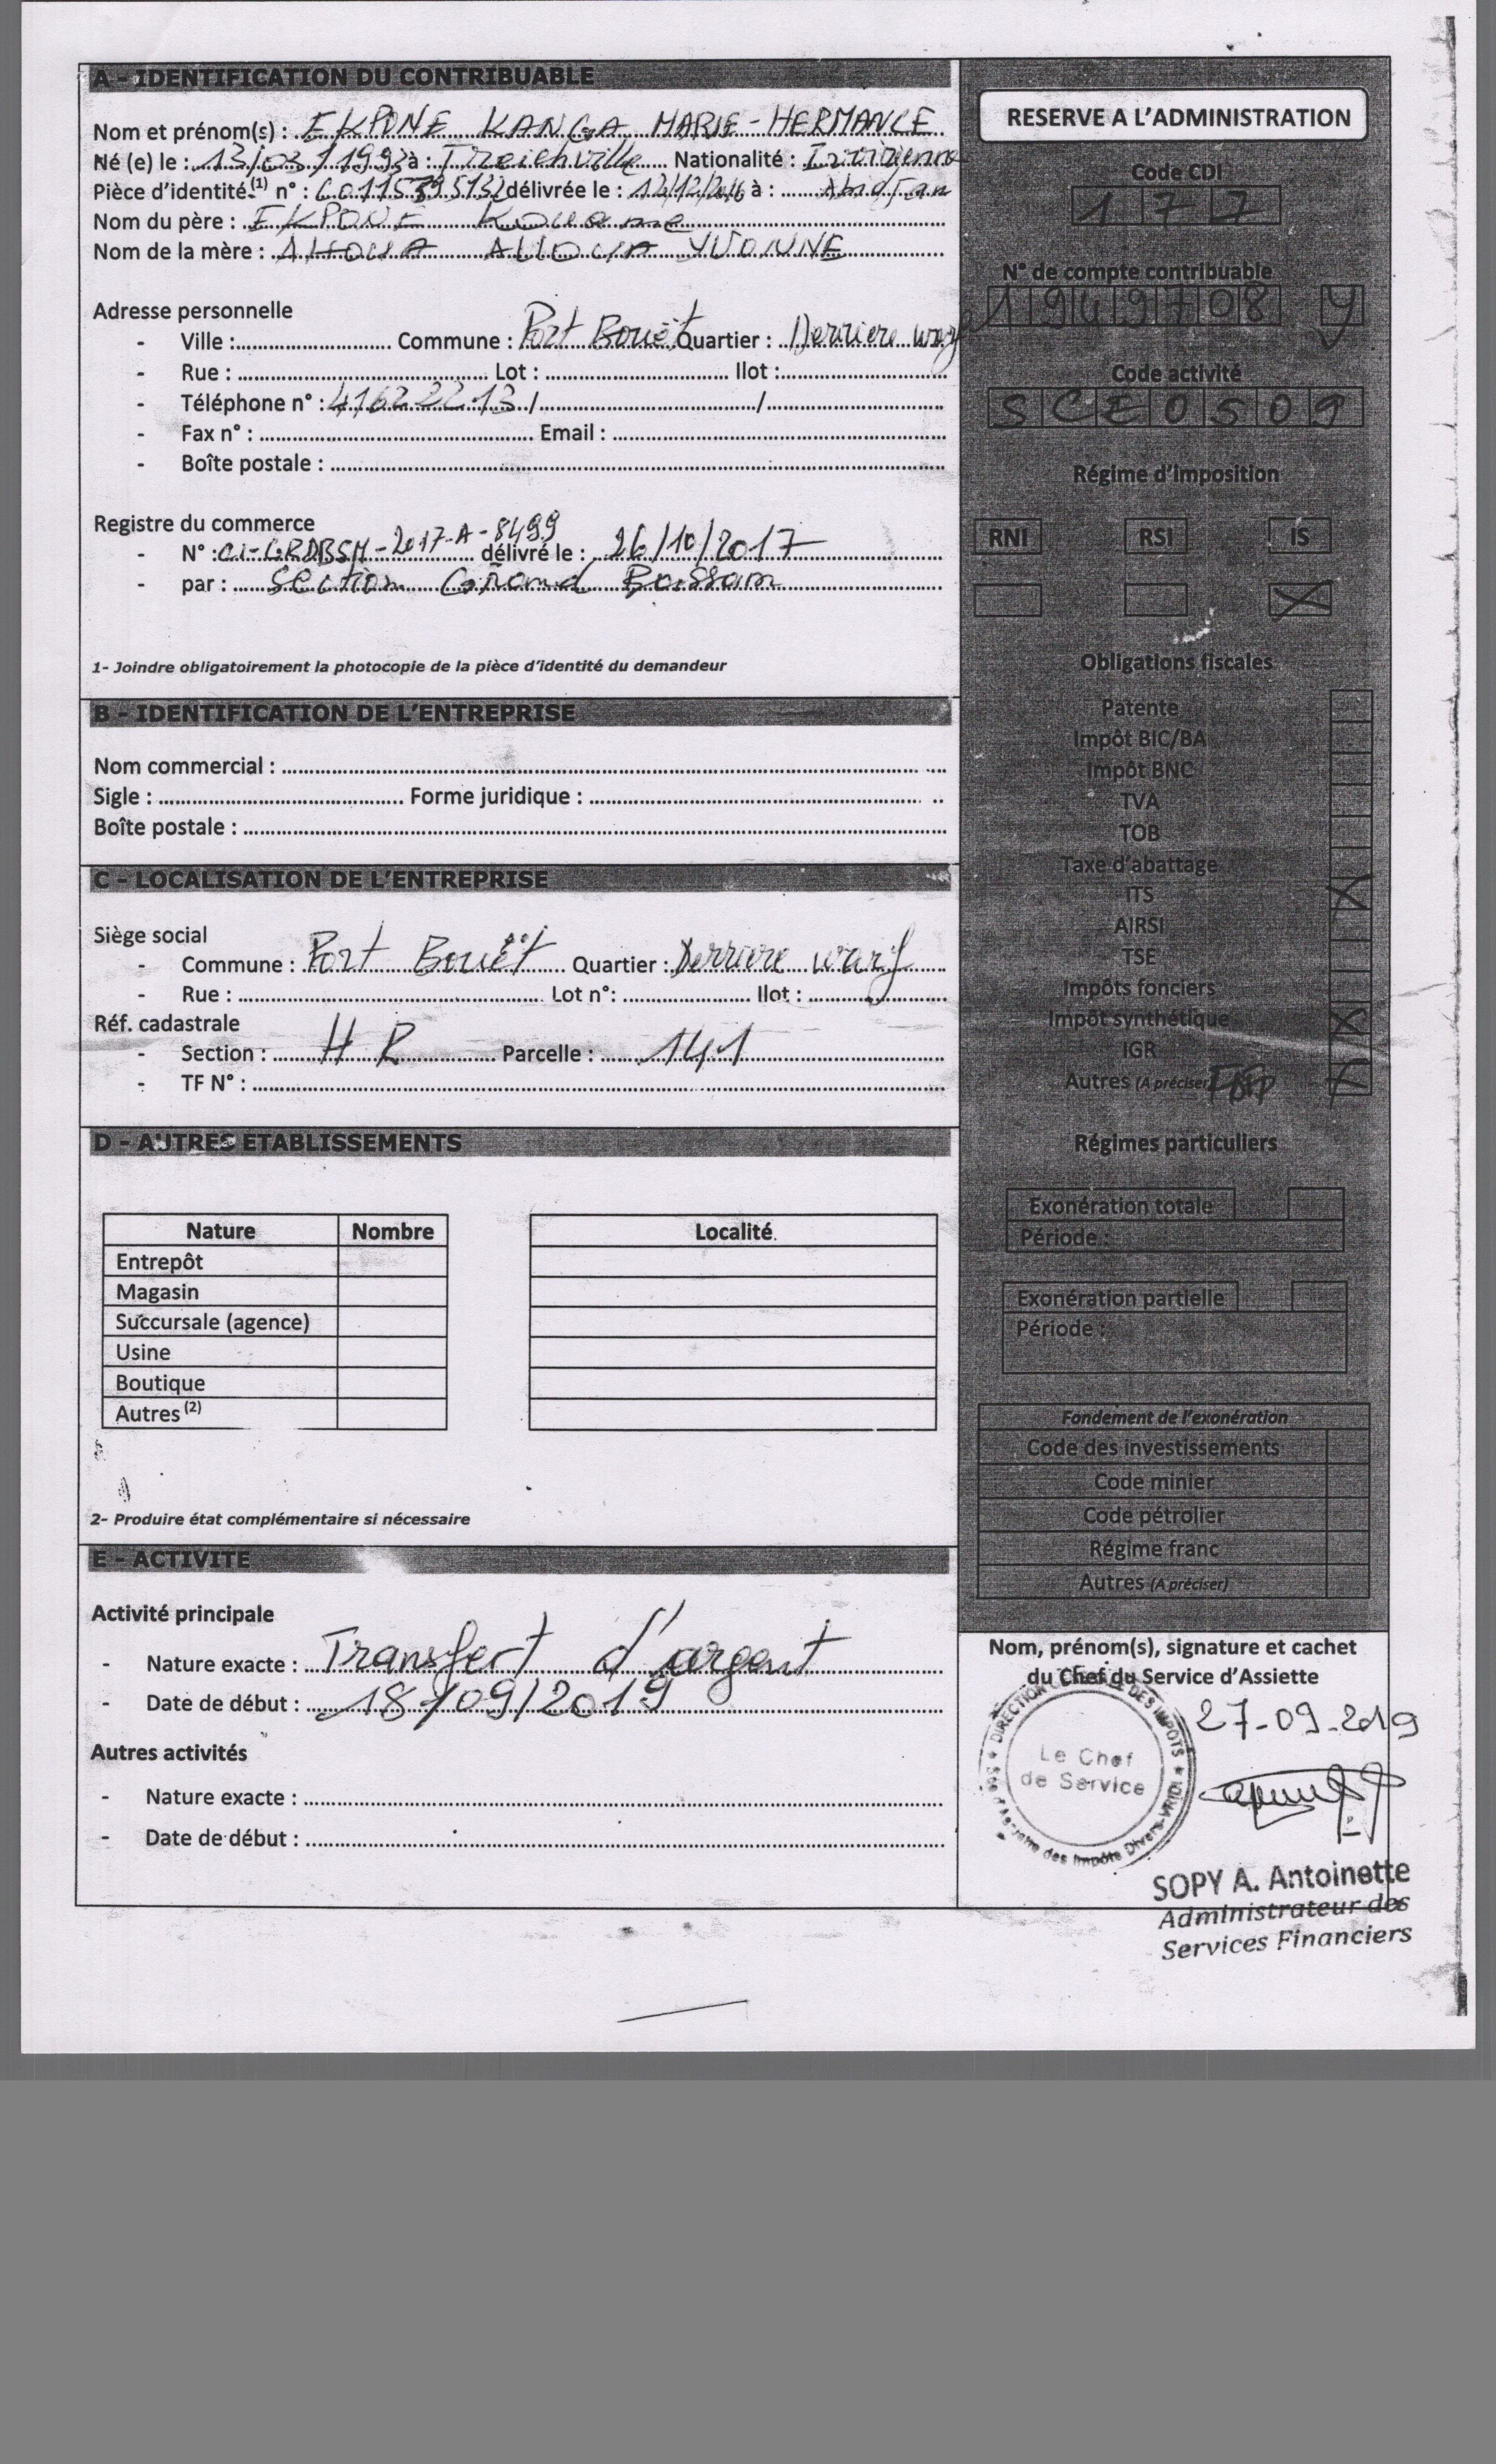 A - IDENTIFICATION DU CONTRIBUABLE
Nom et prénom(s) : EKPONE KANGA MARIE-HERMANCE
Né (e) le : 13/03/1993 à : Treichville Nationalité : Ivoirienne
Pièce d'identité(1) n° : délivrée le : 12/12/2016 à : Abidjan
Nom du père : EKPONE Kouame
Nom de la mère : AHOUA YVONNE
Adresse personnelle
- Ville : Commune : Port Bouët Quartier : Derriere warf
- Rue : Lot : Ilot :
- Téléphone n° : 41622213 / /
- Fax n° : Email :
- Boîte postale :
Registre du commerce
- N° : CI-GRDBSM-2017-A-8499 délivré le : 26/10/2017
- par : Section Grand Bassam
1- Joindre obligatoirement la photocopie de la pièce d'identité du demandeur
B - IDENTIFICATION DE L'ENTREPRISE
Nom commercial :
Sigle : Forme juridique :
Boîte postale :
C - LOCALISATION DE L'ENTREPRISE
Siège social
- Commune : Port Bouët Quartier : Derriere warf
- Rue : Lot n°: Ilot :
Réf. cadastrale
- Section : HR Parcelle : 141
- TF N° :
D - AUTRES ETABLISSEMENTS
Nature Nombre Localité
Entrepôt
Magasin
Succursale (agence)
Usine
Boutique
Autres (2)
2- Produire état complémentaire si nécessaire
E - ACTIVITE
Activité principale
- Nature exacte : Transfert d'argent
- Date de début : 18/09/2019
Autres activités
- Nature exacte :
- Date de début :
RESERVE A L'ADMINISTRATION
Code CDI
177
N° de compte contribuable
1949708 Y
Code activité
SCE0509
Régime d'imposition
RNI RSI IS
Obligations fiscales
Patente
Impôt BIC/BA
Impôt BNC
TVA
TOB
Taxe d'abattage
ITS
AIRSI
TSE
Impôts fonciers
Impôt synthétique
IGR
Autres (A préciser)
Régimes particuliers
Exonération totale
Période :
Exonération partielle
Période :
Fondement de l'exonération
Code des investissements
Code minier
Code pétrolier
Régime franc
Autres (A préciser)
Nom, prénom(s), signature et cachet
du Chef du Service d'Assiette
27-09-2019
DIRECTION DES IMPOTS
Le Chef
de Service
des Impôts Divers-VRIDI
SOPY A. Antoinette
Administrateur des
Services Financiers